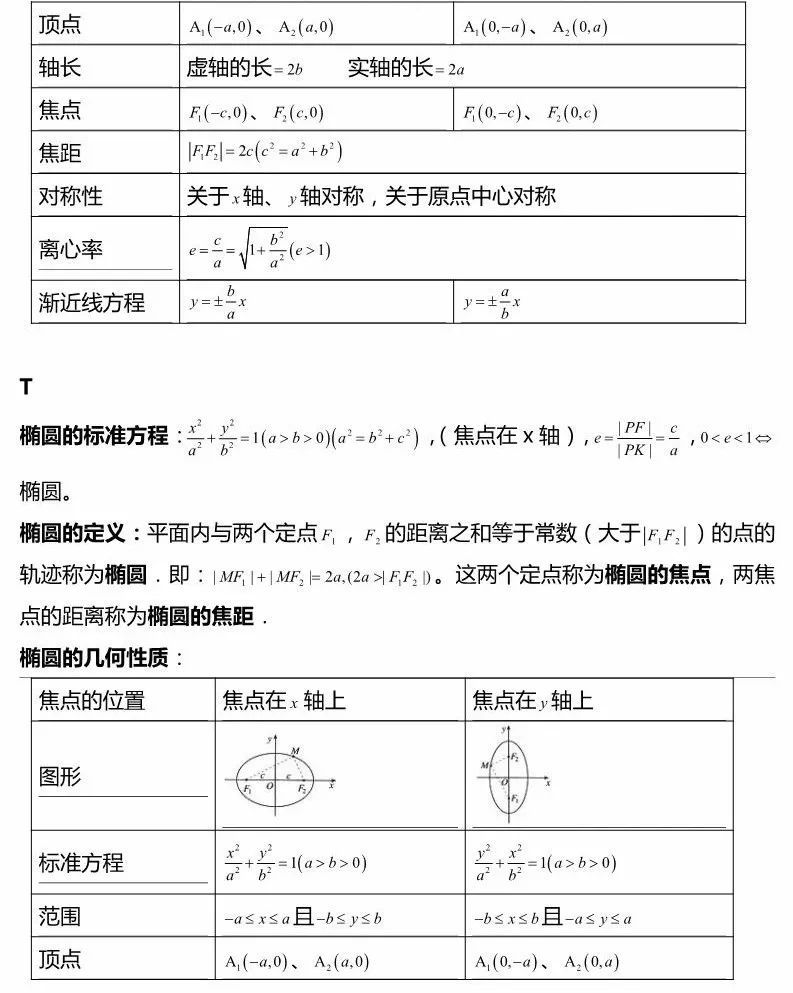 顶点 A₁(−a,0)、 A₂(a,0) A₁(0,−a)、 A₂(0,a)
轴长 虚轴的长=2b 实轴的长=2a
焦点 F₁(−c,0)、 F₂(c,0) F₁(0,−c)、 F₂(0,c)
焦距 |F₁F₂|=2c(c²=a²+b²)
对称性 关于x轴、y轴对称，关于原点中心对称
离心率 e=c/a=√(1+b²/a²)(e>1)
渐近线方程 y=±(b/a)x y=±(a/b)x
T
椭圆的标准方程：x²/a²+y²/b²=1(a>b>0)(a²=b²+c²)，（焦点在 x 轴），e=|PF|/|PK|=c/a，0<e<1⇔
椭圆。
椭圆的定义：平面内与两个定点F₁，F₂的距离之和等于常数（大于|F₁F₂|）的点的
轨迹称为椭圆．即：|MF₁|+|MF₂|=2a,(2a>|F₁F₂|)。这两个定点称为椭圆的焦点，两焦
点的距离称为椭圆的焦距．
椭圆的几何性质：
焦点的位置 焦点在x轴上 焦点在y轴上
图形
y M c c F₁ O F₂ x
y F₂ M O x F₁
标准方程 x²/a²+y²/b²=1(a>b>0) y²/a²+x²/b²=1(a>b>0)
范围 −a≤x≤a且−b≤y≤b −b≤x≤b且−a≤y≤a
顶点 A₁(−a,0)、 A₂(a,0) A₁(0,−a)、 A₂(0,a)